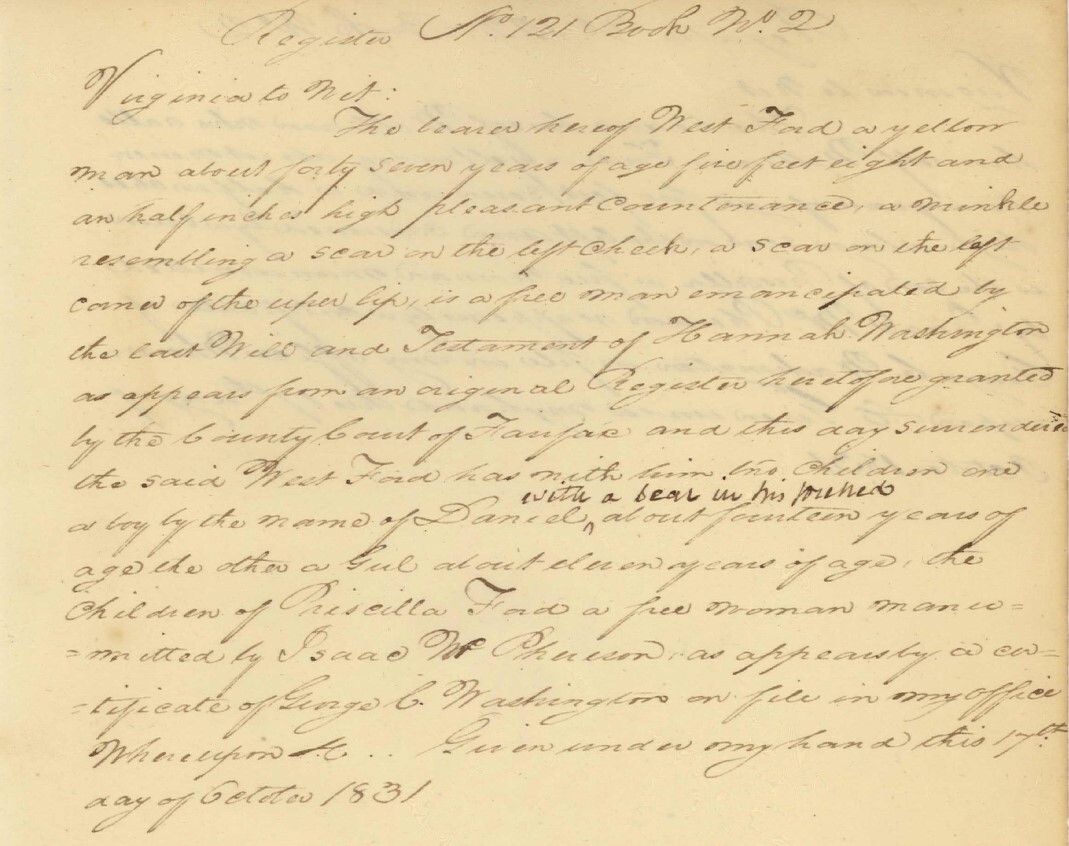 Register No. 121 Book No. 2
Virginia to Wit:
The bearer hereof West Ford a yellow
man about forty seven years of age five feet eight and
an half inches high pleasant Countenance, a wrinkle
resembling a scar on the left Cheek, a scar on the left
corner of the uper lip, is a free man emancipated by
the last Will and Testament of Hannah Washington
as appears from an original Register heretofore granted
by the County Court of Fairfax and this day surrendered
the said West Ford has with him two Children one
with a scar in his forehead
a boy by the name of Daniel, ^ about fourteen years of
age the other a Girl about eleven years of age, the
Children of Priscilla Ford a free woman manu=
=mitted by Isaac McPherson, as appears by a cer=
=tificate of George C. Washington on file in my office
Whereupon &c.. Given under my hand this 17th.
day of October 1831